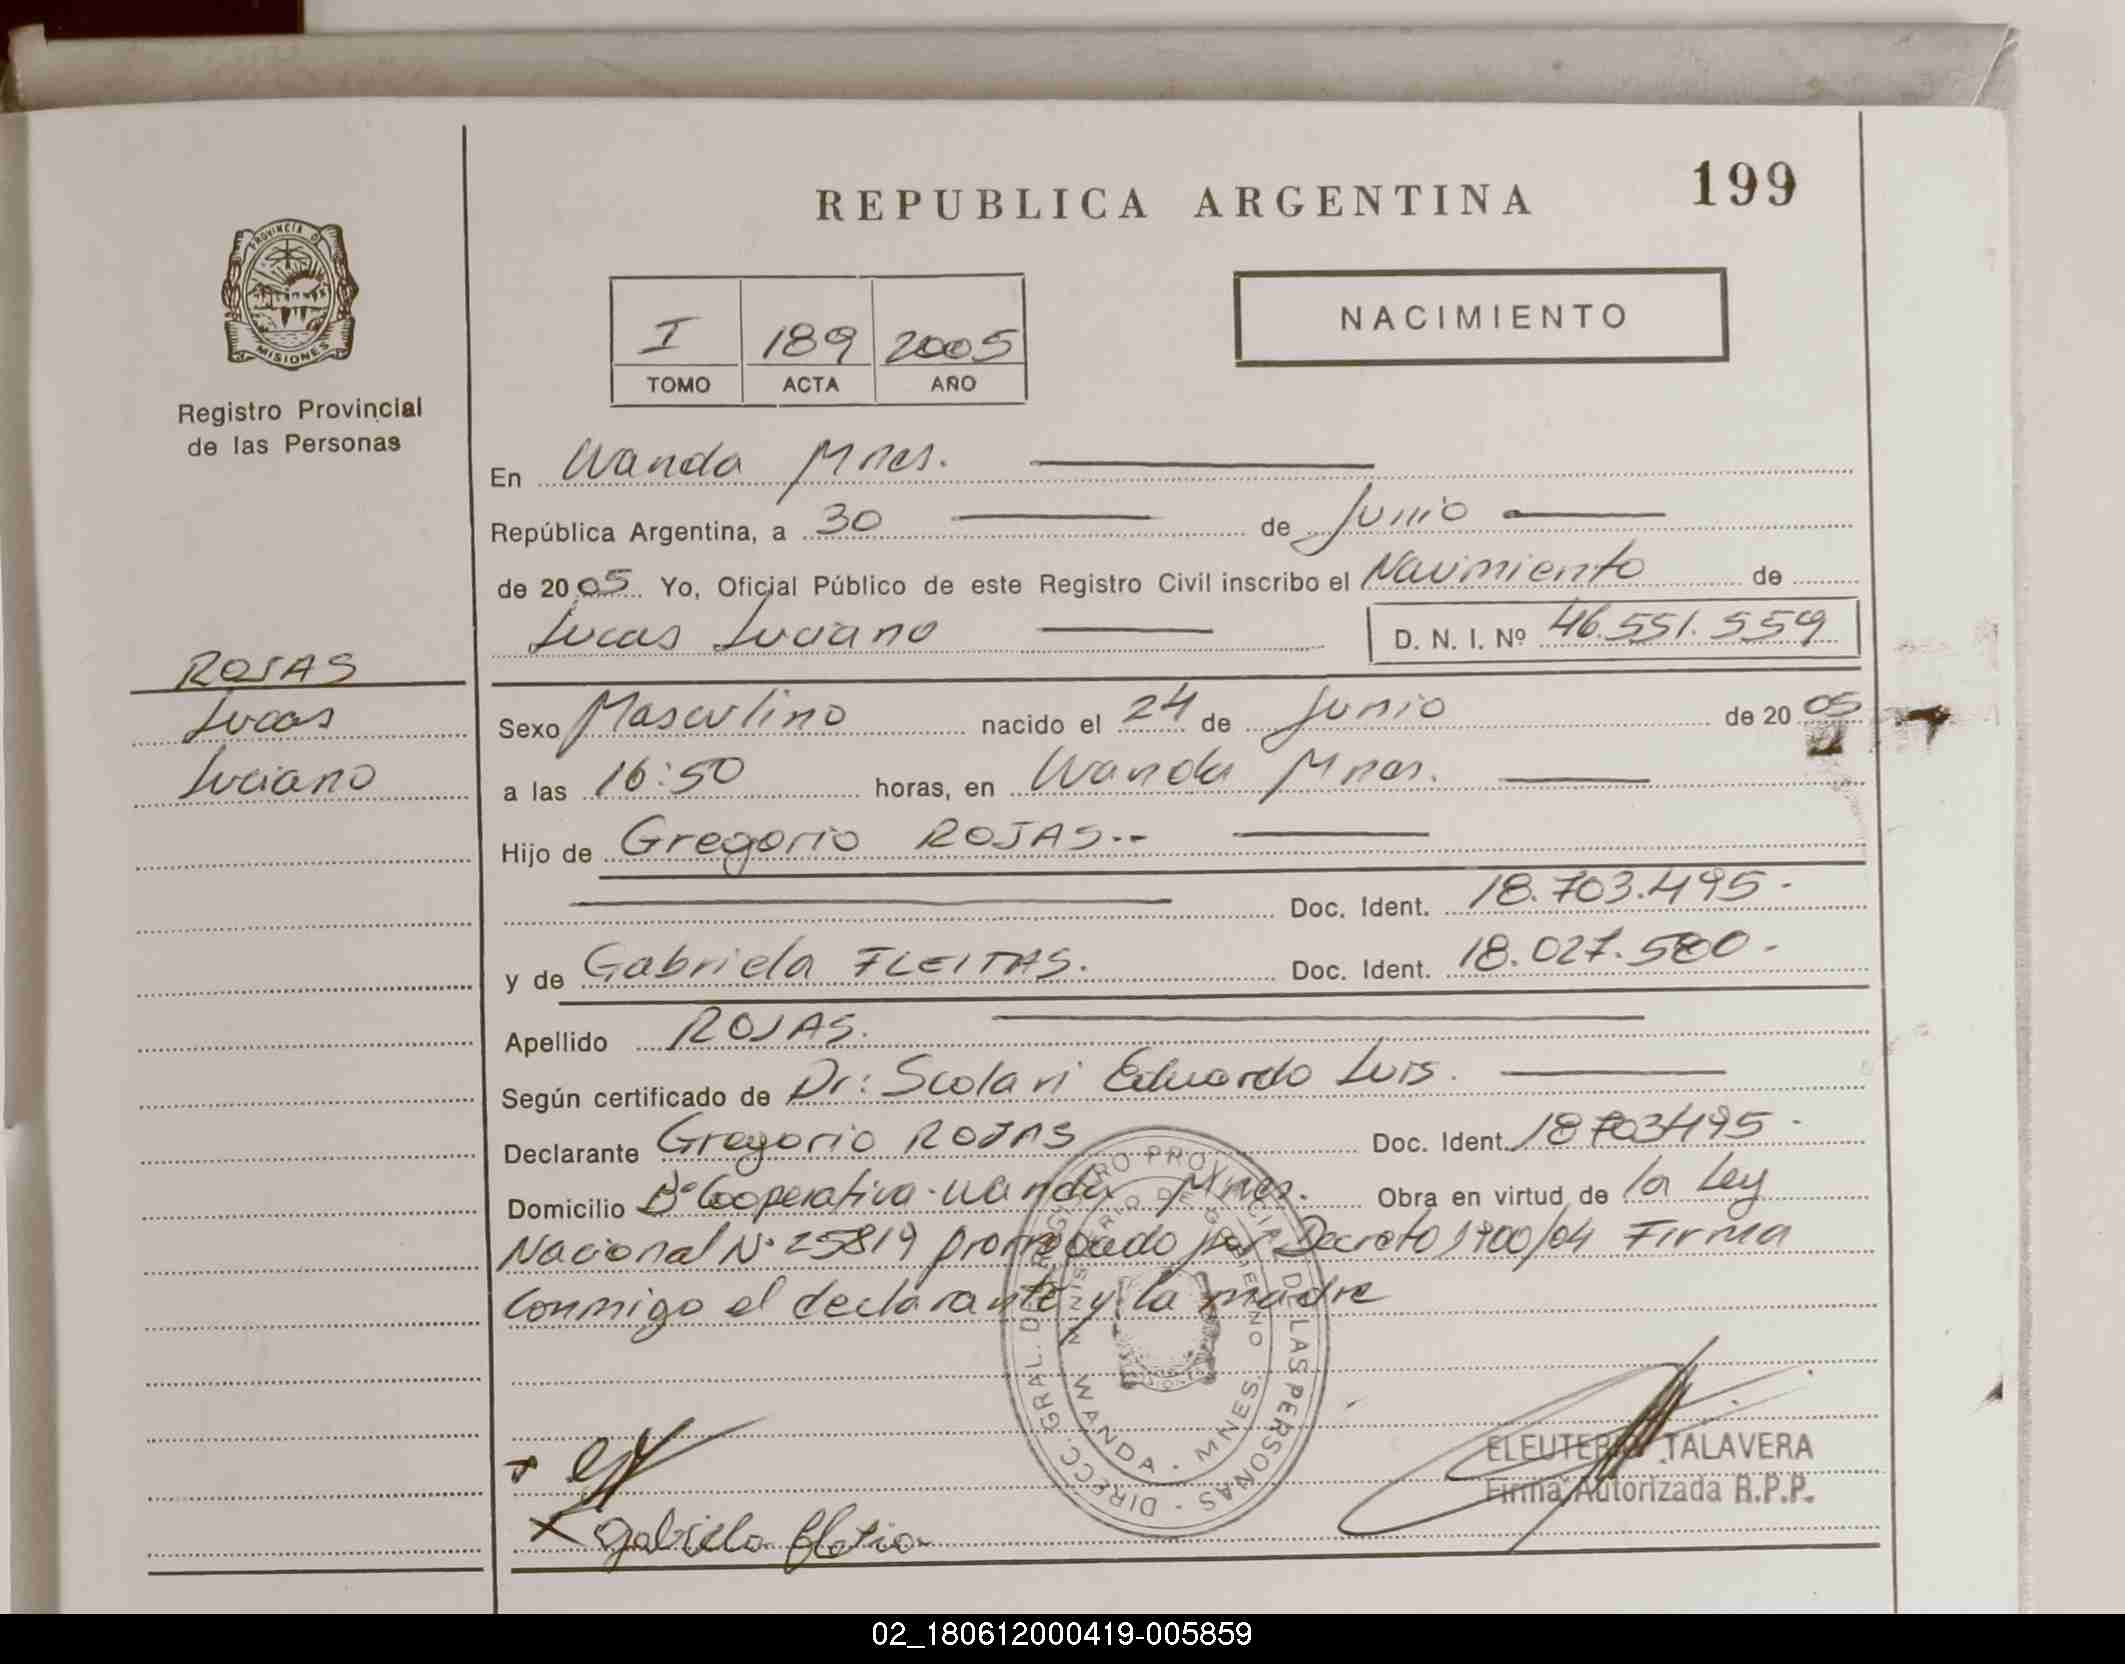 REPUBLICA ARGENTINA
199
PROVINCIA D
MISIONES
Registro Provincial
de las Personas
I 189 2005
TOMO ACTA AÑO
NACIMIENTO
En Wanda Mnes.
República Argentina, a 30 de Junio
de 2005 Yo, Oficial Público de este Registro Civil inscribo el Nacimiento de
Lucas Luciano D. N. I. Nº 46.551.559
ROJAS
Lucas
Luciano
Sexo Masculino nacido el 24 de Junio de 2005
a las 16:50 horas, en Wanda Mnes.
Hijo de Gregorio ROJAS.--
Doc. Ident. 18.703.495-
y de Gabriela FLEITAS. Doc. Ident. 18.027.580-
Apellido ROJAS.
Según certificado de Dr: Scolari Eduardo Luis.
Declarante Gregorio ROJAS Doc. Ident. 18703495-
Domicilio Bº Cooperativa-Wanda Mnes. Obra en virtud de la Ley
Nacional Nº 25819 prorrogado por Decreto 1900/04 Firma
Conmigo el declarante y la madre
DIRECC. GRAL. DEL REGISTRO PROVINCIAL DE LAS PERSONAS -
MINISTERIO DE GOBIERNO
WANDA - MNES.
ELEUTERIO TALAVERA
Firma Autorizada R.P.P.
x Gabriela
02_180612000419-005859